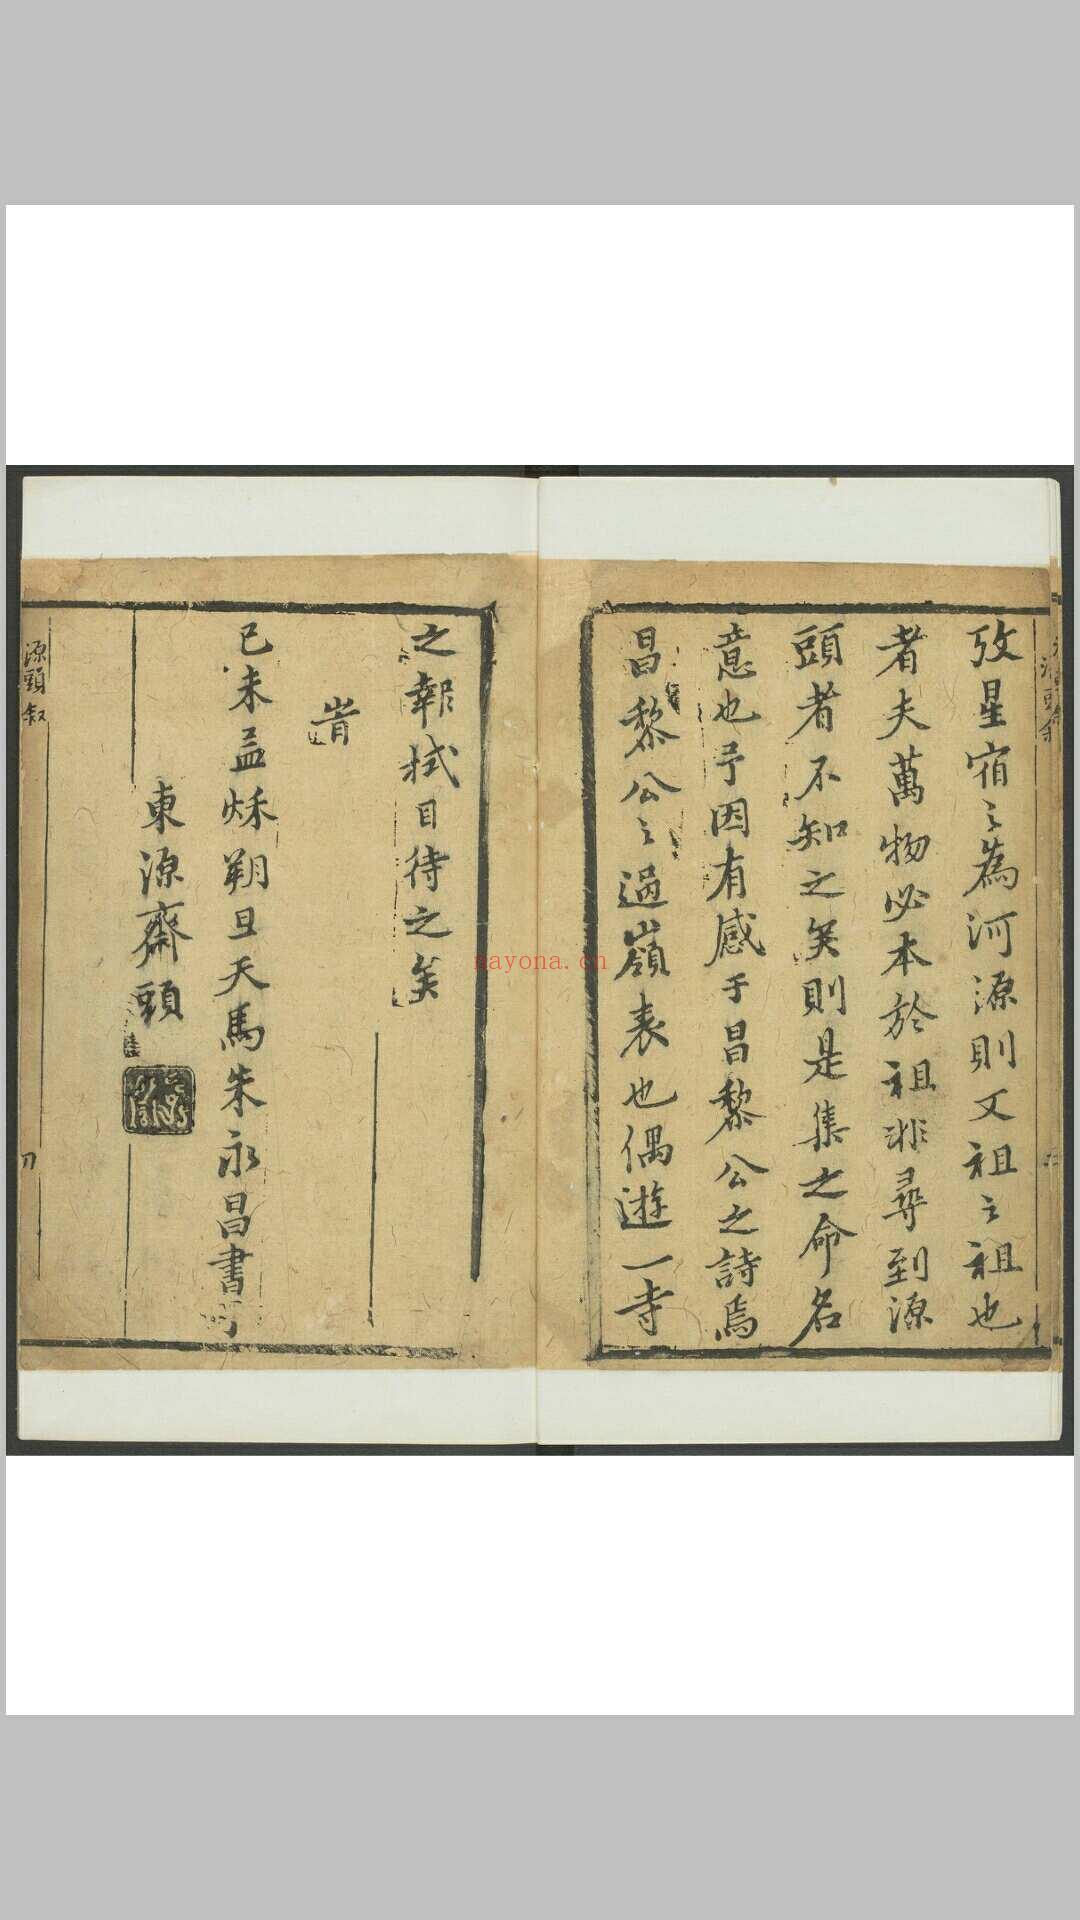 攷星宿之為河源則又祖之祖也
者夫萬物必本於祖非尋到源
頭者不知之矣則是集之命名
意也予因有感于昌黎公之詩焉
昌黎公之過嶺表也偶遊一寺
之報拭目待之矣
旹
己未孟秌朔旦天馬朱永昌書
東源齋頭
源頭叙
nayona.cn